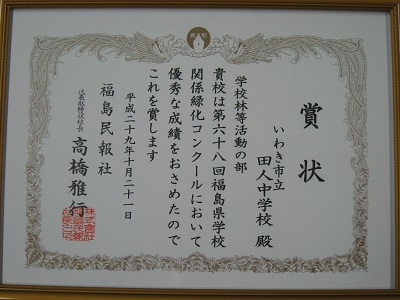 賞状
いわき市立
田人中学校 殿
学校林等活動の部
貴校は第六十八回福島県学校
関係緑化コンクールにおいて
優秀な成績をおさめたので
これを賞します
平成二十九年十月二十一日
福島民報社
代表取締役社長 高橋雅行